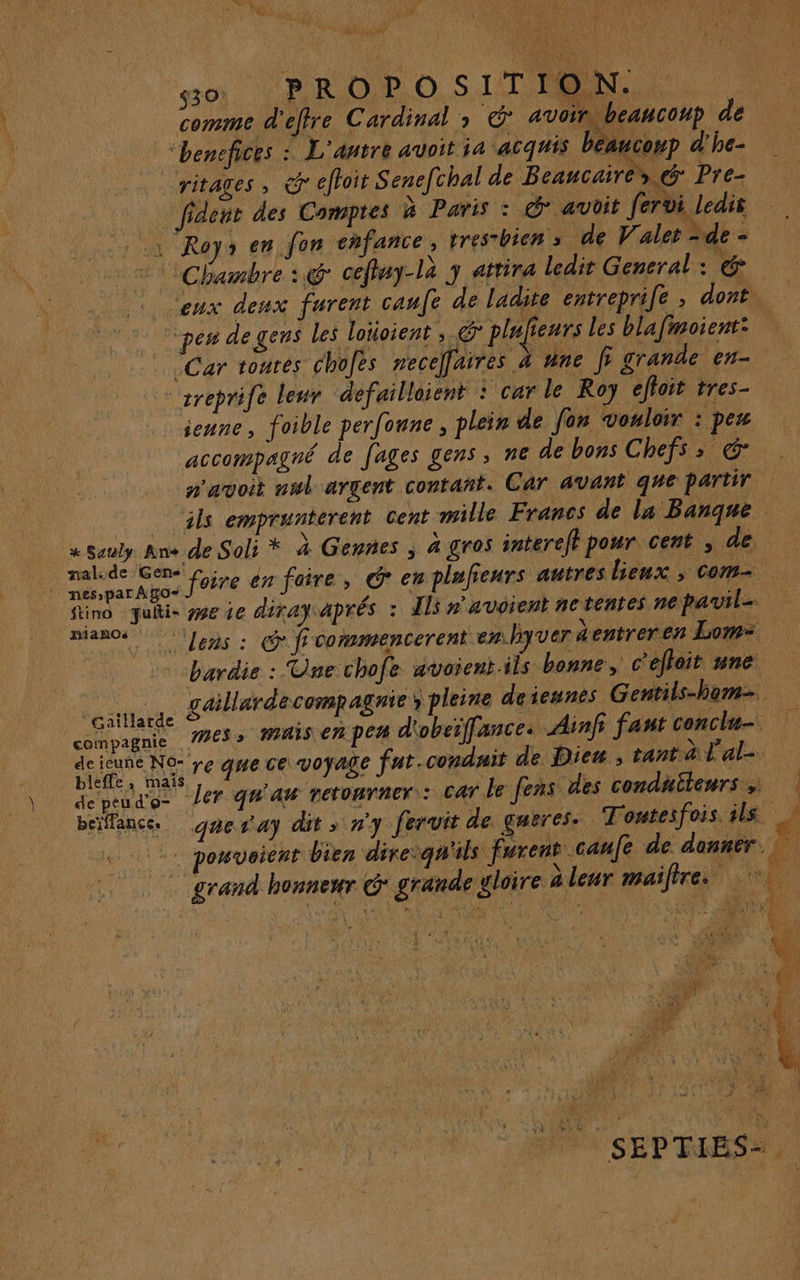 530 PROPOSITION.
comme d'eſtre Cardinal, & avoir beaucoup de
benefices : L'autre avoit ia acquis beaucoup d'he-
ritages, & eſtoit Seneſchal de Beaucaire, & Pre-
ſident des Comptes à Paris : & avoit ſervi ledit
Roy, en ſon enfance, tres-bien, de Valet-de-
Chambre : & ceſtuy-là y attira ledit General : &
eux deux furent cauſe de ladite entrepriſe, dont
peu de gens les loüoient, & pluſieurs les blaſmoient:
Car toutes choſes neceſſaires à une ſi grande en-
trepriſe leur defailloient : car le Roy eſtoit tres-
ieune, foible perſonne, plein de ſon vouloir : peu
accompagné de ſages gens, ne de bons Chefs, &
n'avoit nul argent contant. Car avant que partir
ils emprunterent cent mille Francs de la Banque
de Soli * à Gennes, à gros intereſt pour cent, de
foire en foire, & en pluſieurs autres lieux, com-
me ie diray aprés : Ils n'avoient ne tentes ne pavil-
lens : & ſi commencerent en hyver à entrer en Lom-
bardie : Une choſe avoient-ils bonne, c'eſtoit une
gaillarde compagnie, pleine de ieunes Gentils-hom-
mes, mais en peu d'obeïſſance. Ainſi faut conclu-
re que ce voyage fut conduit de Dieu, tant à l'al-
ler qu'au retourner : car le ſens des conducteurs,
que i'ay dit, n'y ſervit de gueres. Toutesfois ils
pouvoient bien dire qu'ils furent cauſe de donner
grand honneur & grande gloire à leur maiſtre.
* Sauly An*
nal. de Gen-
nes, par Ago-
ſtino Juſti-
niano.
Gaillarde
compagnie
de ieune No-
bleſſe, mais
de peu d'o-
beïſſance.
SEPTIES-